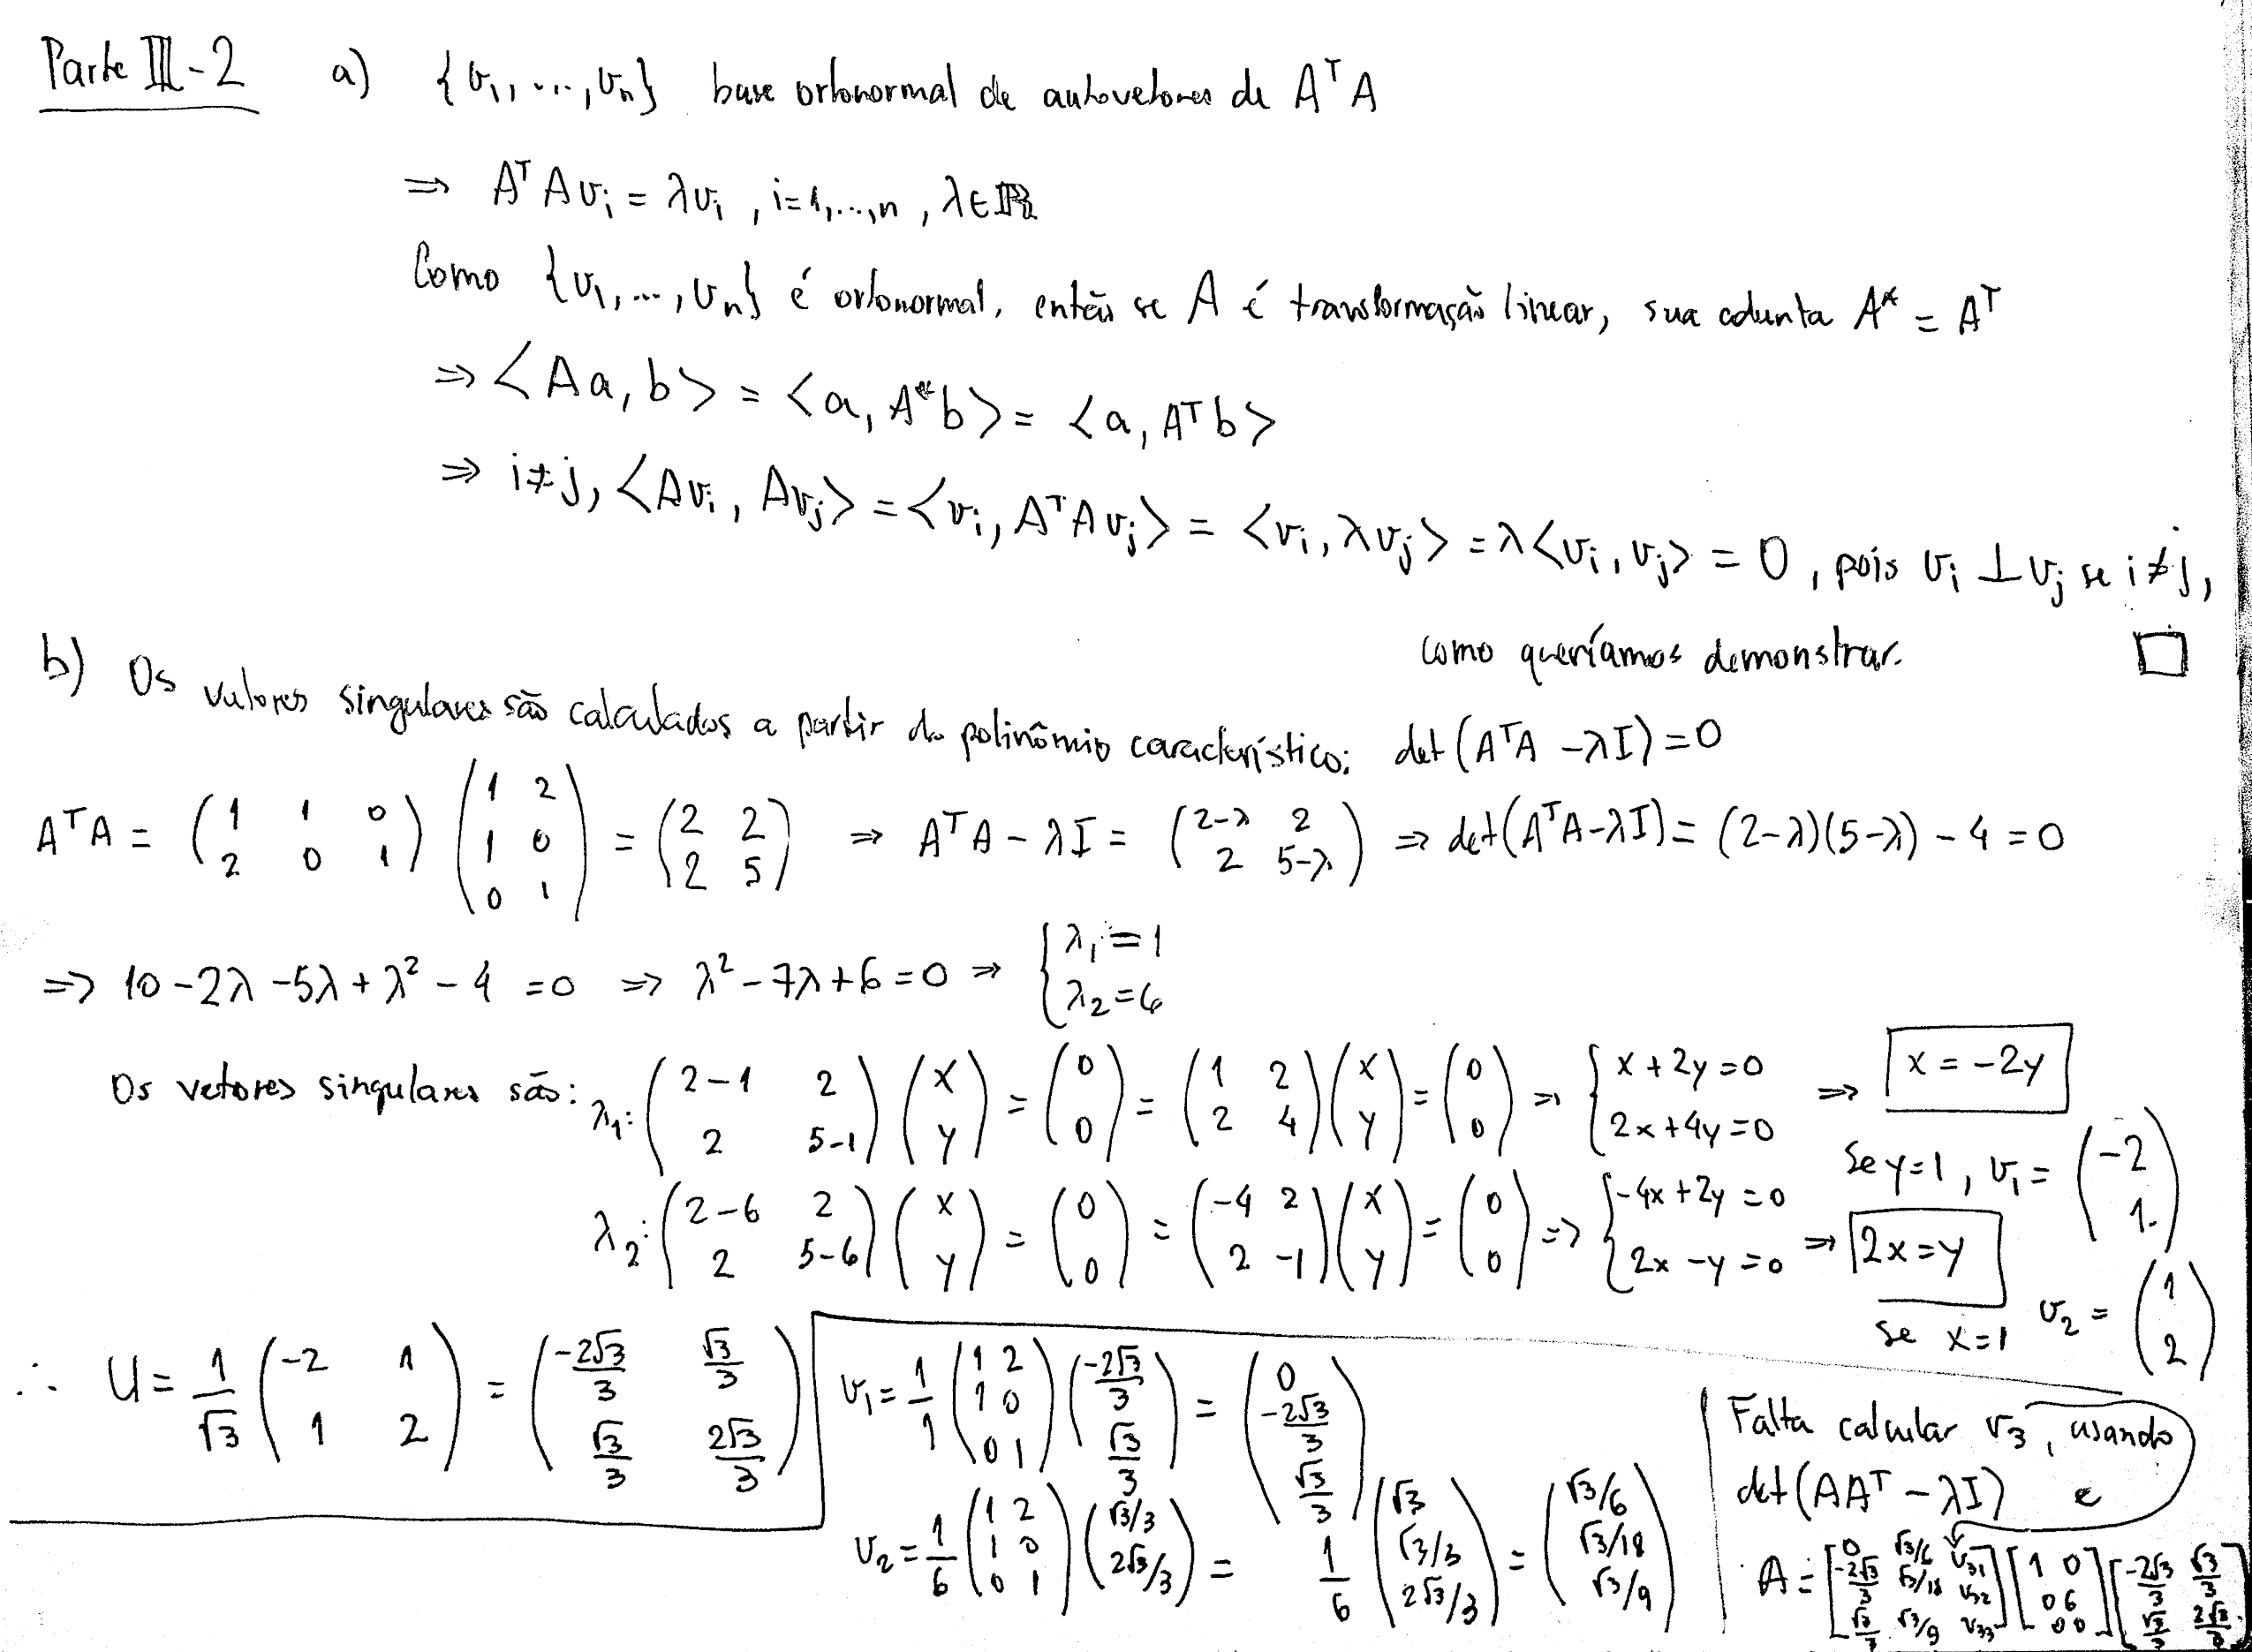 Parte III-2 a) {v₁, ..., vₙ} base ortonormal de autovetores de AᵀA
⇒ AᵀAvᵢ = λvᵢ, i=1,...,n, λ∈ℝ
Como {v₁, ..., vₙ} é ortonormal, então se A é transformação linear, sua adunta A* = Aᵀ
⇒ <Aa, b> = <a, A*b> = <a, Aᵀb>
⇒ i≠j, <Avᵢ, Avⱼ> = <vᵢ, AᵀAvⱼ> = <vᵢ, λvⱼ> = λ<vᵢ, vⱼ> = 0, pois vᵢ ⊥ vⱼ se i≠j,
como queríamos demonstrar. □
b) Os valores singulares são calculados a partir do polinômio característico: det(AᵀA - λI) = 0
AᵀA = (1 1 0; 2 0 1) (1 2; 1 0; 0 1) = (2 2; 2 5) ⇒ AᵀA - λI = (2-λ 2; 2 5-λ) ⇒ det(AᵀA - λI) = (2-λ)(5-λ) - 4 = 0
⇒ 10 - 2λ - 5λ + λ² - 4 = 0 ⇒ λ² - 7λ + 6 = 0 ⇒ {λ₁ = 1; λ₂ = 6
Os vetores singulares são: λ₁: (2-1 2; 2 5-1) (x; y) = (0; 0) = (1 2; 2 4) (x; y) = (0; 0) ⇒ {x + 2y = 0; 2x + 4y = 0 ⇒ x = -2y
Se y=1, v₁ = (-2; 1)
λ₂: (2-6 2; 2 5-6) (x; y) = (0; 0) = (-4 2; 2 -1) (x; y) = (0; 0) ⇒ {-4x + 2y = 0; 2x - y = 0 ⇒ 2x = y
se x=1 v₂ = (1; 2)
∴ U = 1/√3 (-2 1; 1 2) = (-2√3/3 √3/3; √3/3 2√3/3)
v₁ = 1/1 (1 2; 1 0; 0 1) (-2√3/3; √3/3) = (0; -2√3/3; √3/3)
v₂ = 1/6 (1 2; 1 0; 0 1) (√3/3; 2√3/3) = 1/6 (√3; √3/3; 2√3/3) = (√3/6; √3/18; √3/9)
Falta calcular v₃, usando
det(AAᵀ - λI) e
A = [0 √3/6 v₃₁; -2√3/3 √3/18 v₃₂; √3/3 √3/9 v₃₃] [1 0; 0 6; 0 0] [-2√3/3 √3/3; √3/3 2√3/3]